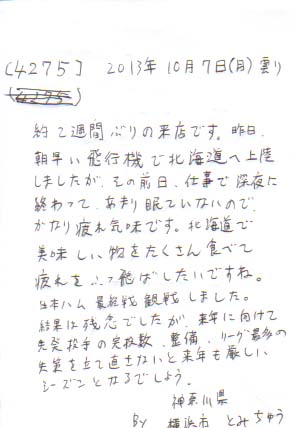 [4275] 2013年10月7日(月)曇り
(4295)
約2週間ぶりの来店です。昨日、
朝早い飛行機で北海道へ上陸
しましたが、その前日、仕事で深夜に
終わって、あまり眠ていないので、
かなり疲れ気味です。北海道で
美味しい物をたくさん食べて
疲れをふっ飛ばしたいですね。
日本ハム 最終戦 観戦しました。
結果は残念でしたが、来年に向けて
先発投手の完投数、整備、リーグ最多の
失策を立て直さないと来年も厳しい
シーズンとなるでしょう。
神奈川県
By 横浜市 とみちゅう